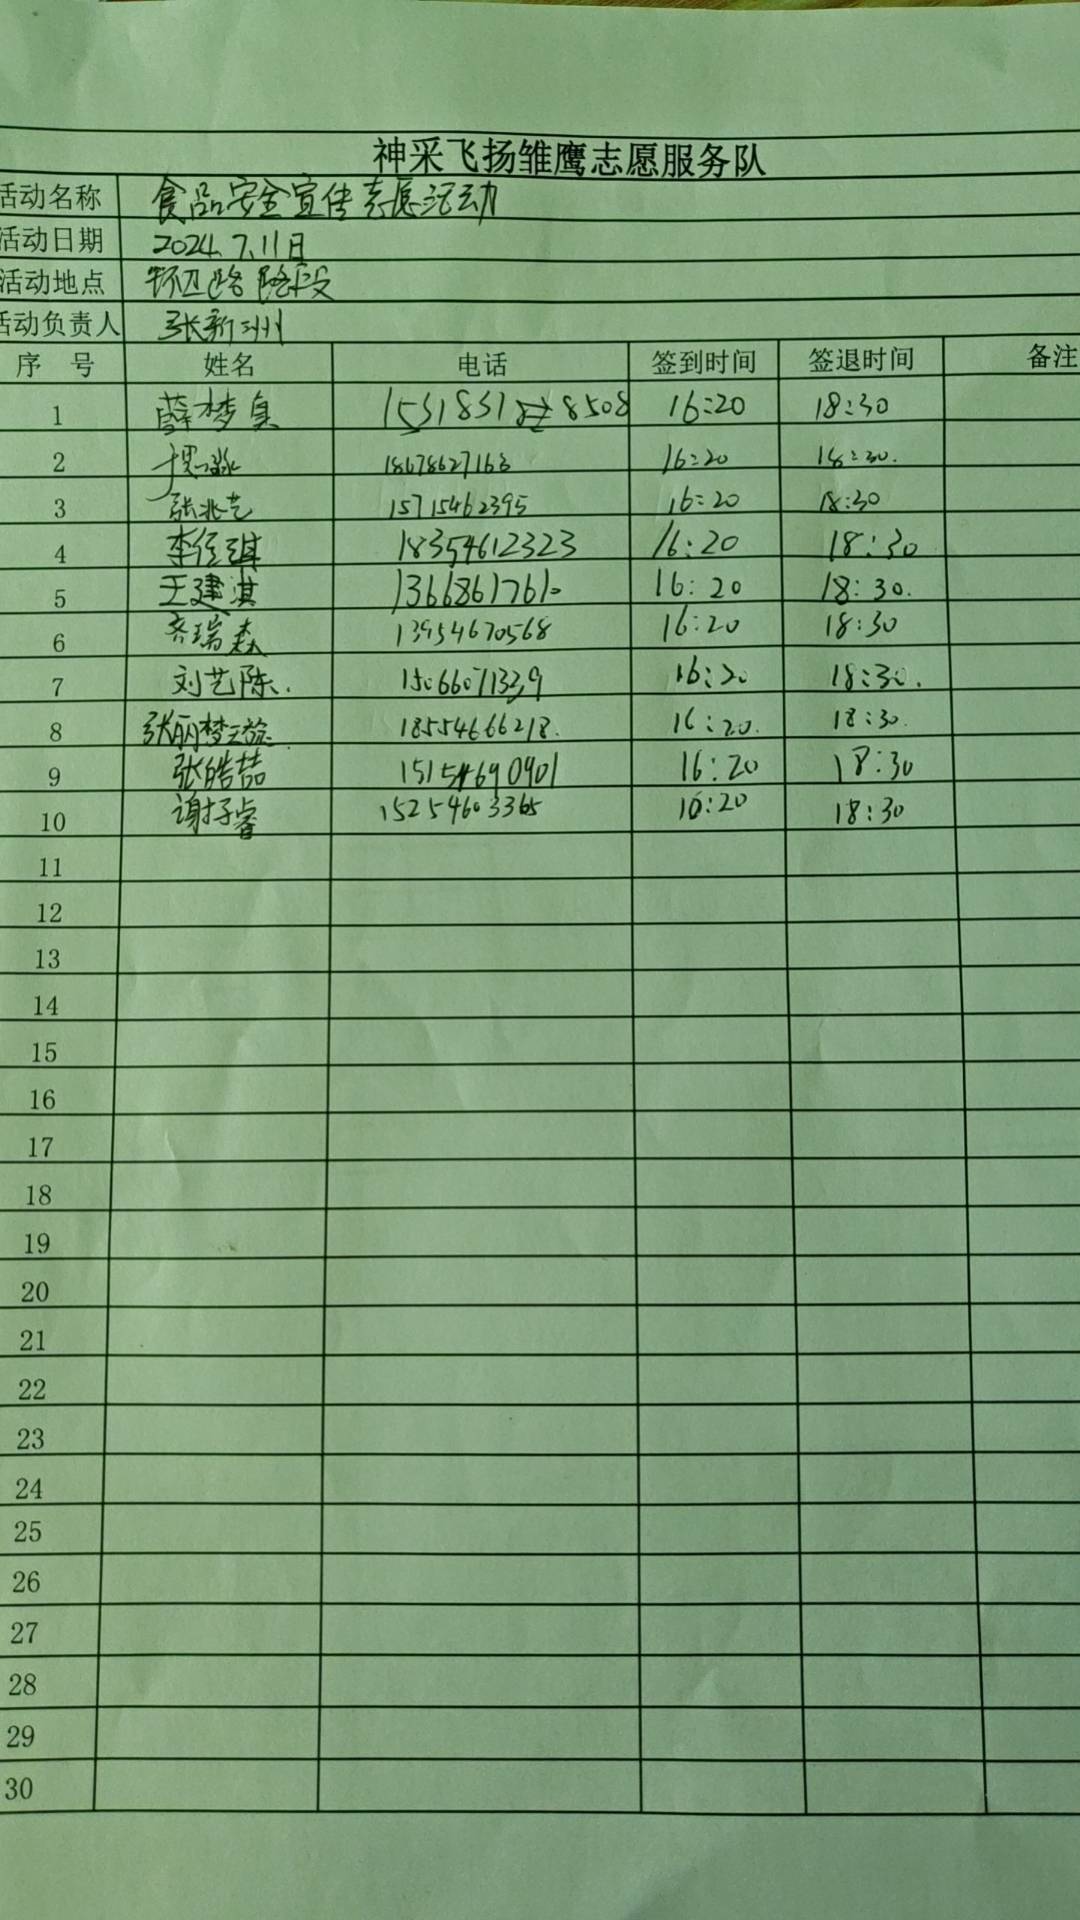 神采飞扬雏鹰志愿服务队
活动名称 食品安全宣传志愿活动
活动日期 2024.7.11日
活动地点 路路段
活动负责人 张新洲
序 号 姓名 电话 签到时间 签退时间 备注
1 薛梦 1531831 8508 16:20 18:30
2 18678627163 16:20 18:30.
3 张兆艺 15715462395 16:20 18:30
4 李任琪 18354612323 16:20 18:30
5 王建淇 1366861761 16:20 18:30.
6 齐瑞森 13954670568 16:20 18:30
7 刘艺陈. 15066071339 16:20 18:30.
8 张丽梦 18554666218. 16:20. 18:30.
9 张皓喆 15154690901 16:20 18:30
10 谢抒睿 15254603365 16:20 18:30
11
12
13
14
15
16
17
18
19
20
21
22
23
24
25
26
27
28
29
30